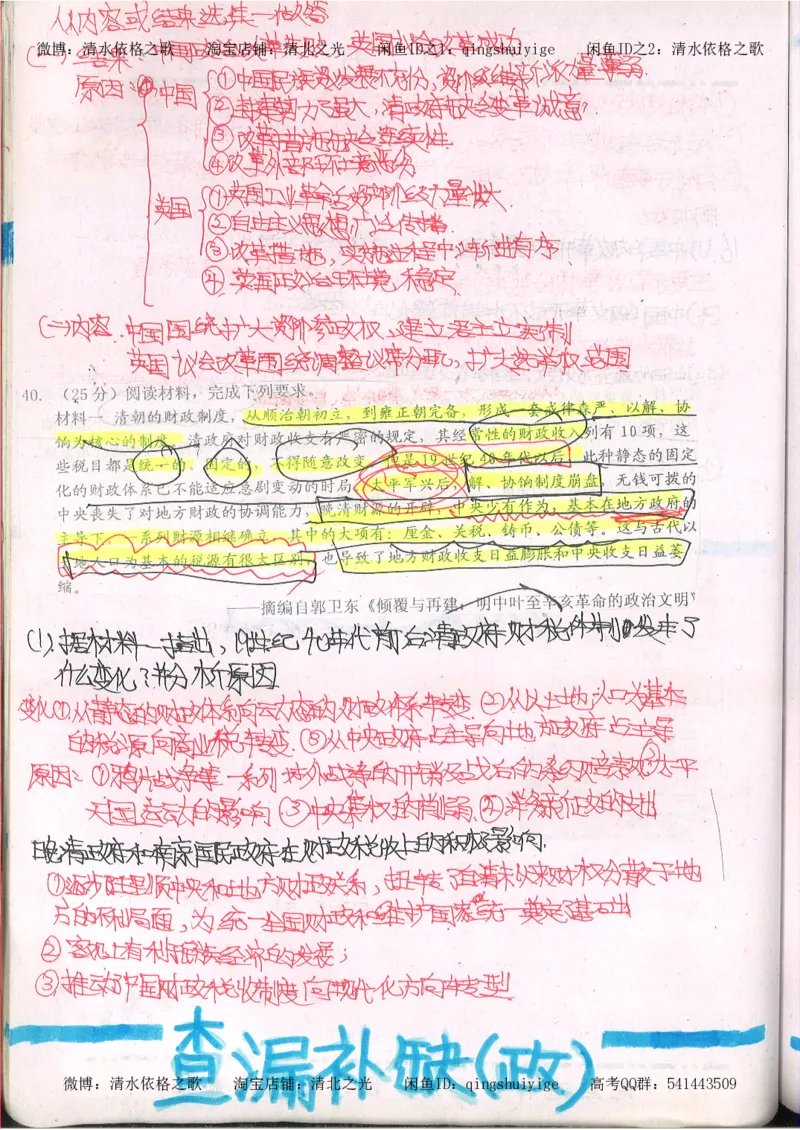 从内容或结果选其一作答
微博：清水依格之歌 淘宝店铺：清北之光 闲鱼ID之1：qingshuiyige 闲鱼ID之2：清水依格之歌
原因：①中国
①中国民族资本发展不充分，资产阶级维新派力量薄弱.
②封建势力强大，清政府缺乏变革诚意.
③改革措施缺乏连续性.
④改革外部环境恶劣
英国
①英国工业革命后资产阶级力量壮大.
②自由主义思想广泛传播.
③改革措施，实施过程中渐进有序
④英国政治环境，稳定.
(二)内容 中国围绕扩大资产参政权、建立君主立宪制
英国议会改革围绕调整议席分配、扩大选举权范围
40. （25分）阅读材料，完成下列要求。
材料一 清朝的财政制度，从顺治朝初立，到雍正朝完备，形成一套戒律森严、以解、协
饷为核心的制度。清政府对财政收支有严密的规定，其经常性的财政收入列有10项，这
些税目都是统一的、固定的，不得随意改变。但是19世纪40年代以后，此种静态的固定
化的财政体系已不能适应急剧变动的时局，太平军兴后，解、协饷制度崩盘，无钱可拨的
中央丧失了对地方财政的协调能力，晚清财源的开辟，中央少有作为，基本在地方政府的
主导下，一系列财源相继确立，其中的大项有：厘金、关税、铸币、公债等。这与古代以
地人口为基本的税源有很大区别，也导致了地方财政收支日益膨胀和中央收支日益萎
缩。
——摘编自郭卫东《倾覆与再建：明中叶至辛亥革命的政治文明》
(1).据材料一指出，19世纪40年代前后清政府财税体制发生了
什么变化？并分析原因
变化①从静态的财政体系向动态的财政体系转变.②从以土地、人口为基本
的税源向商业税转变.③从中央政府占主导向地方政府占主导
原因：①鸦片战争等一系列对外战争的开销及战后的条约赔款②太平
天国运动的影响③中央集权的削弱.④洋务新政的支出
晚清政府和南京国民政府在财政税收上的积极影响.
①逐步理顺中央和地方财政关系，扭转了自清末以来财权分散于地
方的不利局面，为统一全国财政和维护国家的统一奠定了基础
②客观上有利民族经济的发展；
③推动了中国财政税收制度向现代化方向转型
查漏补缺(政)
微博：清水依格之歌 淘宝店铺：清北之光 闲鱼ID：qingshuiyige 高考QQ群：541443509